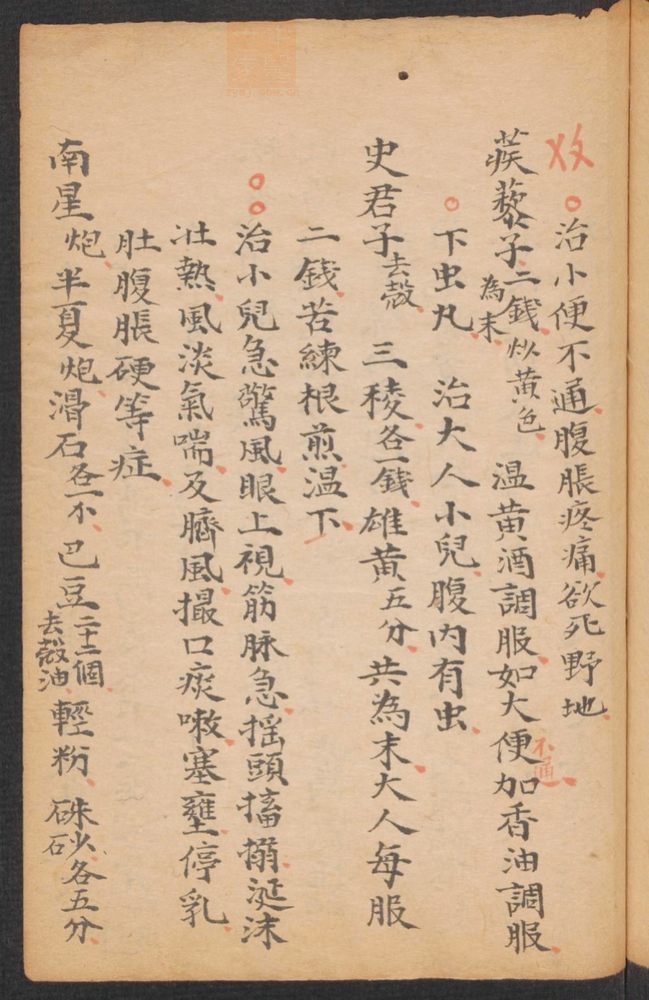 治小便不通腹脹疼痛欲死野地
蒺藜子二錢炒黃色為末 温黄酒調服如大便不通加香油調服
下虫丸 治大人小兒腹内有虫
史君子去殼 三稜各一錢雄黄五分共為末大人每服
二錢苦練根煎温下
治小兒急驚風眼上視筋脉急摇頭搐搦涎沫
壯熱風淡氣喘及臍風撮口痰嗽塞壅停乳
肚腹脹硬等症
南星炮半夏炮滑石各一个巴豆二十二個去殼油輕粉 硃砂各五分